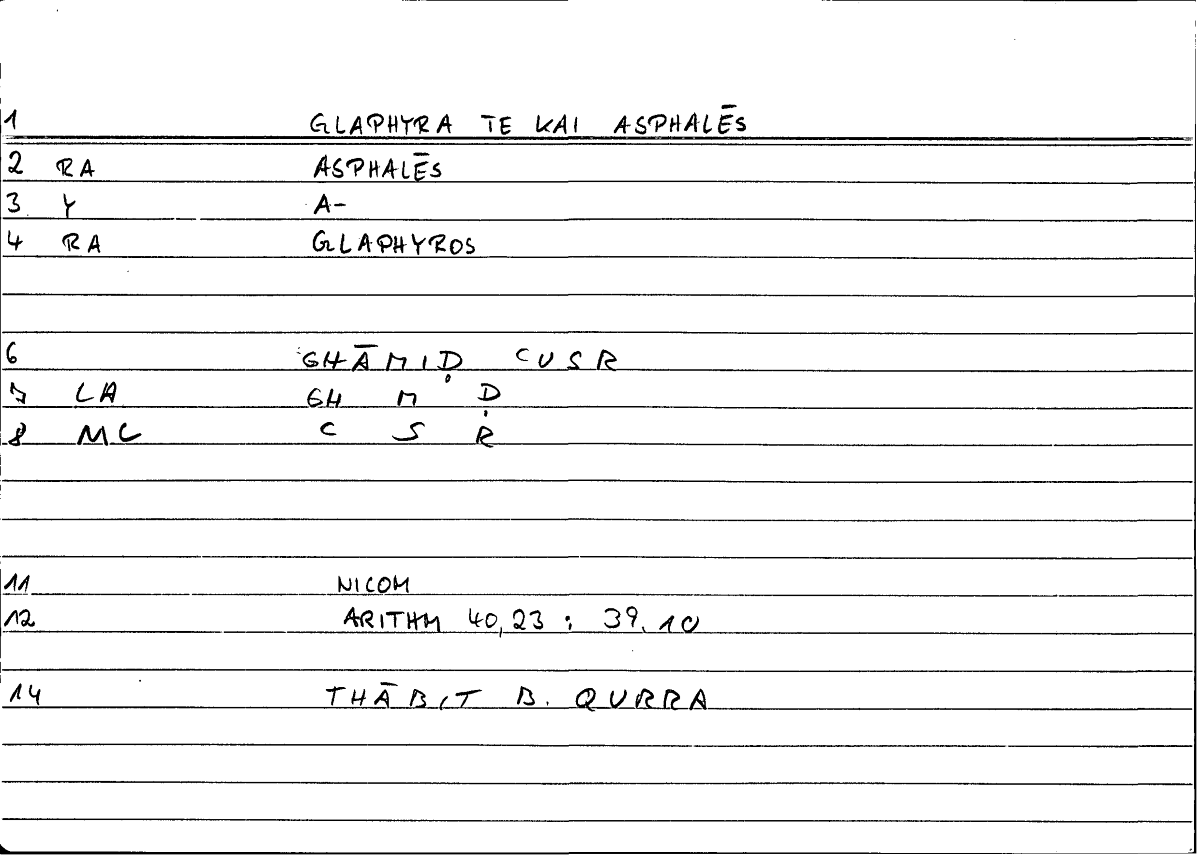 1 GLAPHYRA TE KAI ASPHALĒS
2 RA ASPHALĒS
3 Y A-
4 RA GLAPHYROS
6 GHĀMIḌ CUSR
7 LA GH M Ḍ
8 MC C S R
11 NICOM
12 ARITHM 40,23 : 39.10
14 THĀBIT B. QURRA